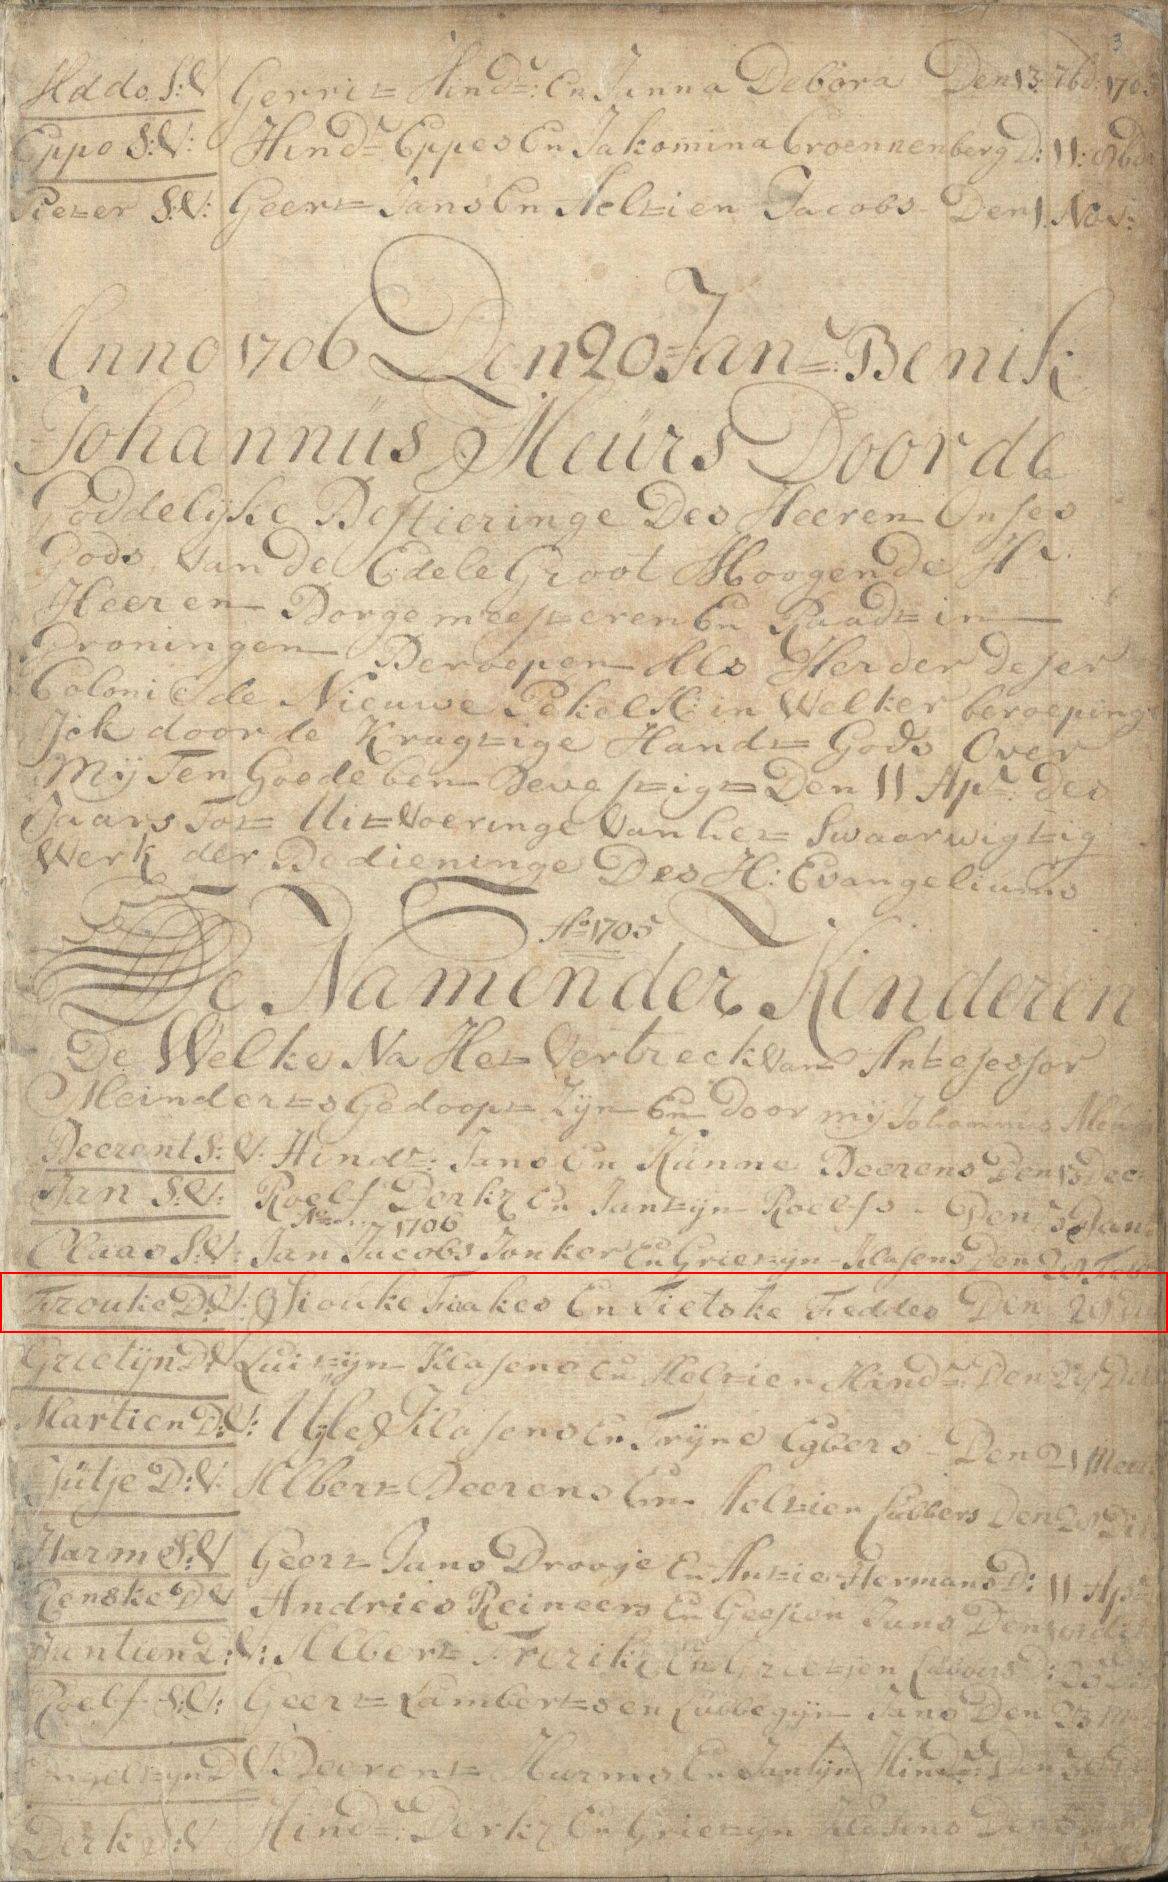 3
Hddo S:V Gerrit Hindr: En Jinna Debora Den 13: 7br: 1705
Eppo S:V: Hindr Eppes En Jakomina Croennenberg D: 11: 8br
Pieter S:V: Geert Jans En Aeltien Jacobs Den 1 Nov:
Anno 1706 Den 20 Janr: Ben ik
Johannus Meürs Door de
Goddelijke Bestieringe Des Heeren Onses
Gods van de Edele Groot Moogende Hr.
Heeren Borgemeesteren En Raadt in
Groningen Beroepen Als Herder deser
Coloni de Nieuwe Pekel A: in Welker beroeping
Jck door de Kragtige Handt Gods Over
Mij Ten Goede ben Bevestigt Den 11 Apr: des
Jaars Tot Uitvoeringe Van het Swaarwigtig
Werk der Bedieninge Des H: Evangeliums
Ao 1705
De Namen der Kinderen
De Welke Na Het Vertreck van Antesessor
Meinderts Gedoopt Zijn En door mij Johannus Meurs
Beerent S: V: Hindr: Jans En Kunne Beerens Den 13 Dec
Jan S:V: Roelf Derkz En Jantyn Roelfs Den 3 Jan
Ao 1706
Claas S:V: Jan Jacobs Jonker En Grietyn Klasens Den Feb
Frouke D:V: Siouke Fookes En Tietske Feddes Den 28
Grietijn D:V Luityn Klasens En Aeltien Hindr: Den
Martien D:V: Uyle Klasens En Tryne Egbers Den 21 Meert
Jütje D:V: Albert Beerens En Aeltien Lubbers Den 28
Harm S:V Geert Jans Drooje En Antie Hermans D: 11 Apr
Renske D:V Andries Reineers En Geesien Jans Den
Jantien D:V: Albert Frerikz En Grietjen Lubbers D: 25
Roelf S:V: Geert Lamberts en Lubbegyn Jans Den 23
D V Beerent Harms En Jantyn Hindr: Den
Derk S:V Hindr: Derkz En Grietyn Klasens Den